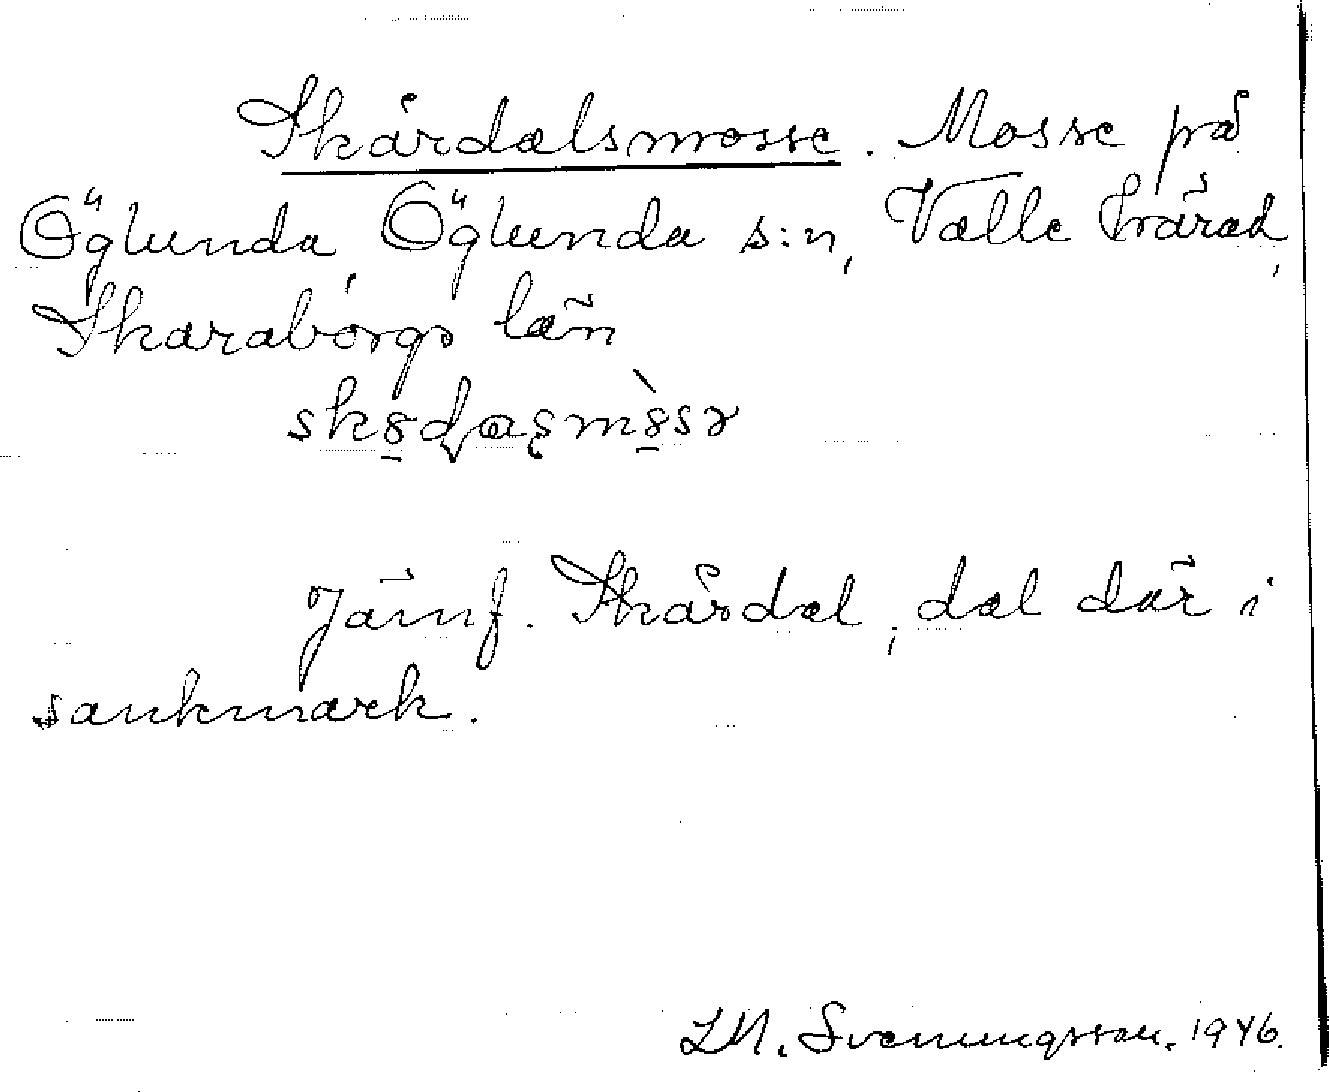 Skårdalsmosse. Mosse på
Öglunda Öglunda s:n, Valle härad,
Skaraborgs län

Jämf. Skårdal, dal där i
sankmark.
Svenungsson. 1946.